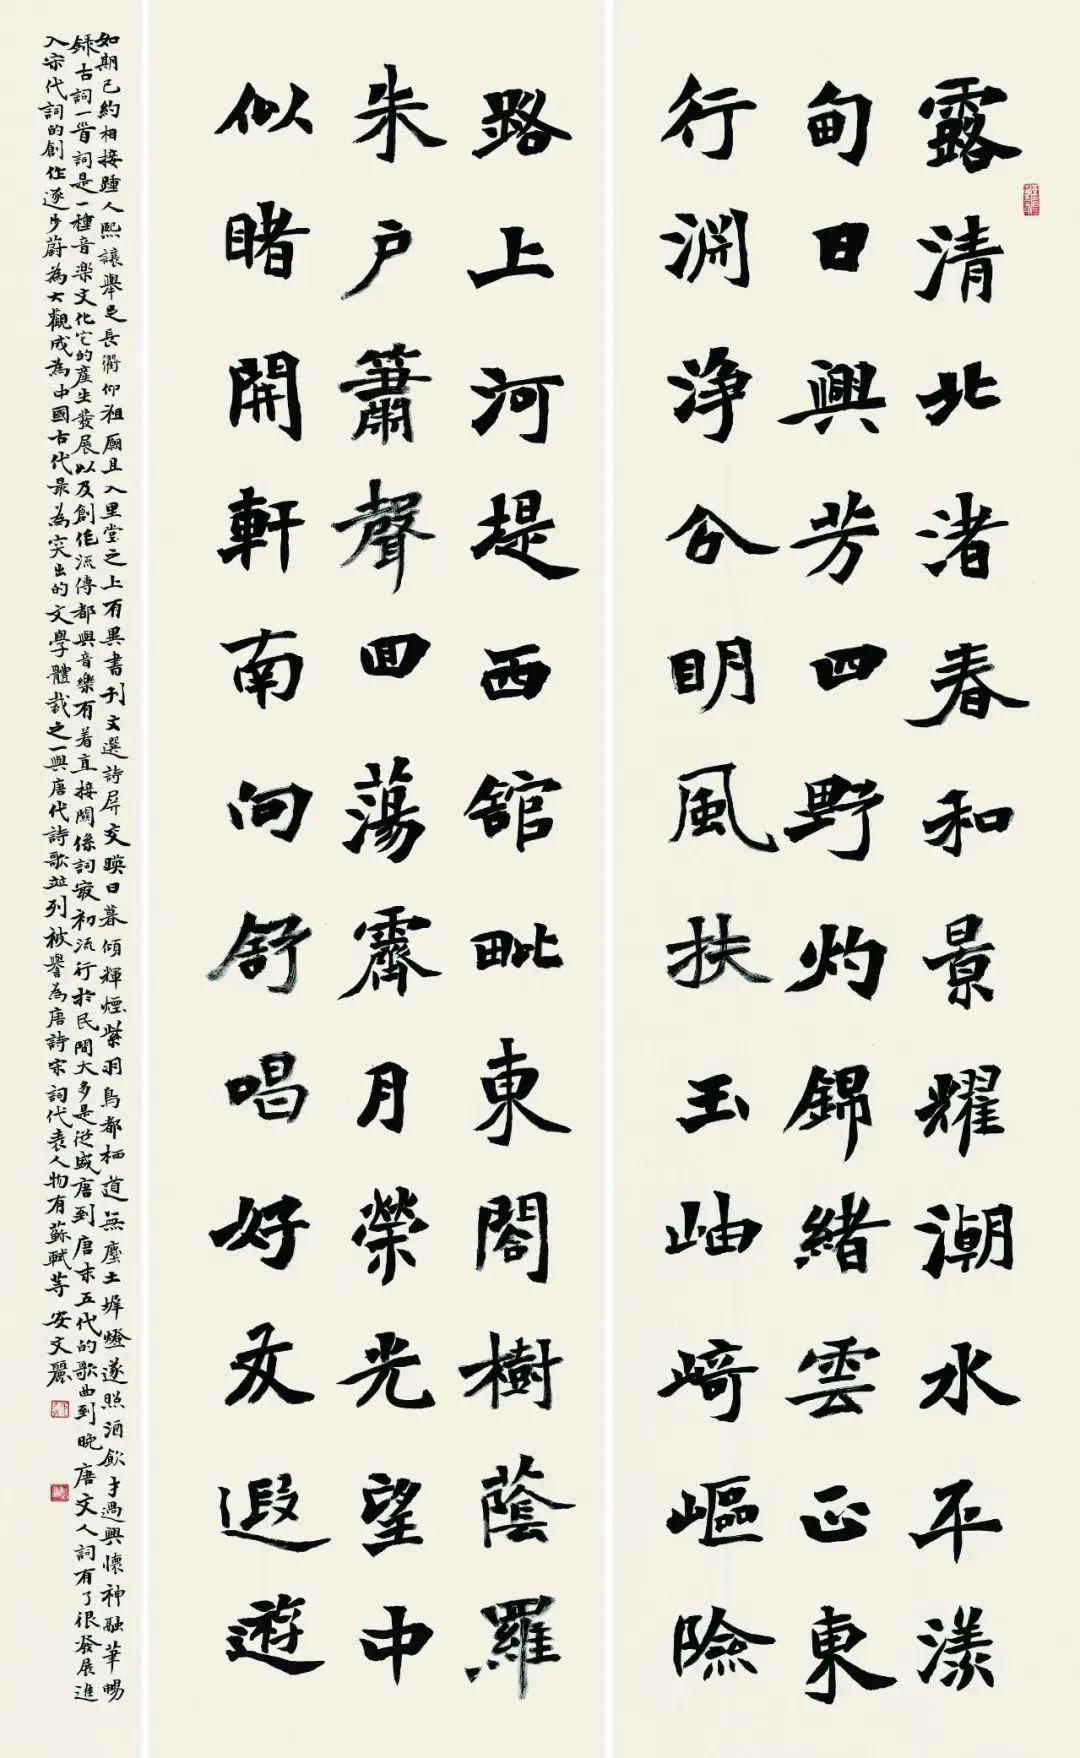 露清北渚春和景耀潮水平漾
甸日興芳四野灼錦緒雲正東
行淵淨公明風扶玉岫崎嶇險
路上河堤西館毗東閣樹蔭羅
朱户簫聲回蕩霽月榮光望中
似睹開軒南向舒唱好友遐遊
如期已約相接踵人熙讓舉足長衢仰祖廟且入里堂之上有異書刊文選詩屏交暎日暮傾輝煙紫羽鳥都栖道無塵土墀燈遂照酒飲才過興懷神融筆暢
録古詞一首詞是一種音樂文化它的産生發展以及創作流傳都與音樂有着直接關係詞最初流行於民間大多是從盛唐到唐末五代的歌曲到晚唐文人詞有了很發展進
入宋代詞的創作逐步蔚為大觀成為中國古代最為突出的文學體裁之一與唐代詩歌並列被譽為唐詩宋詞代表人物有蘇軾等 安文麗